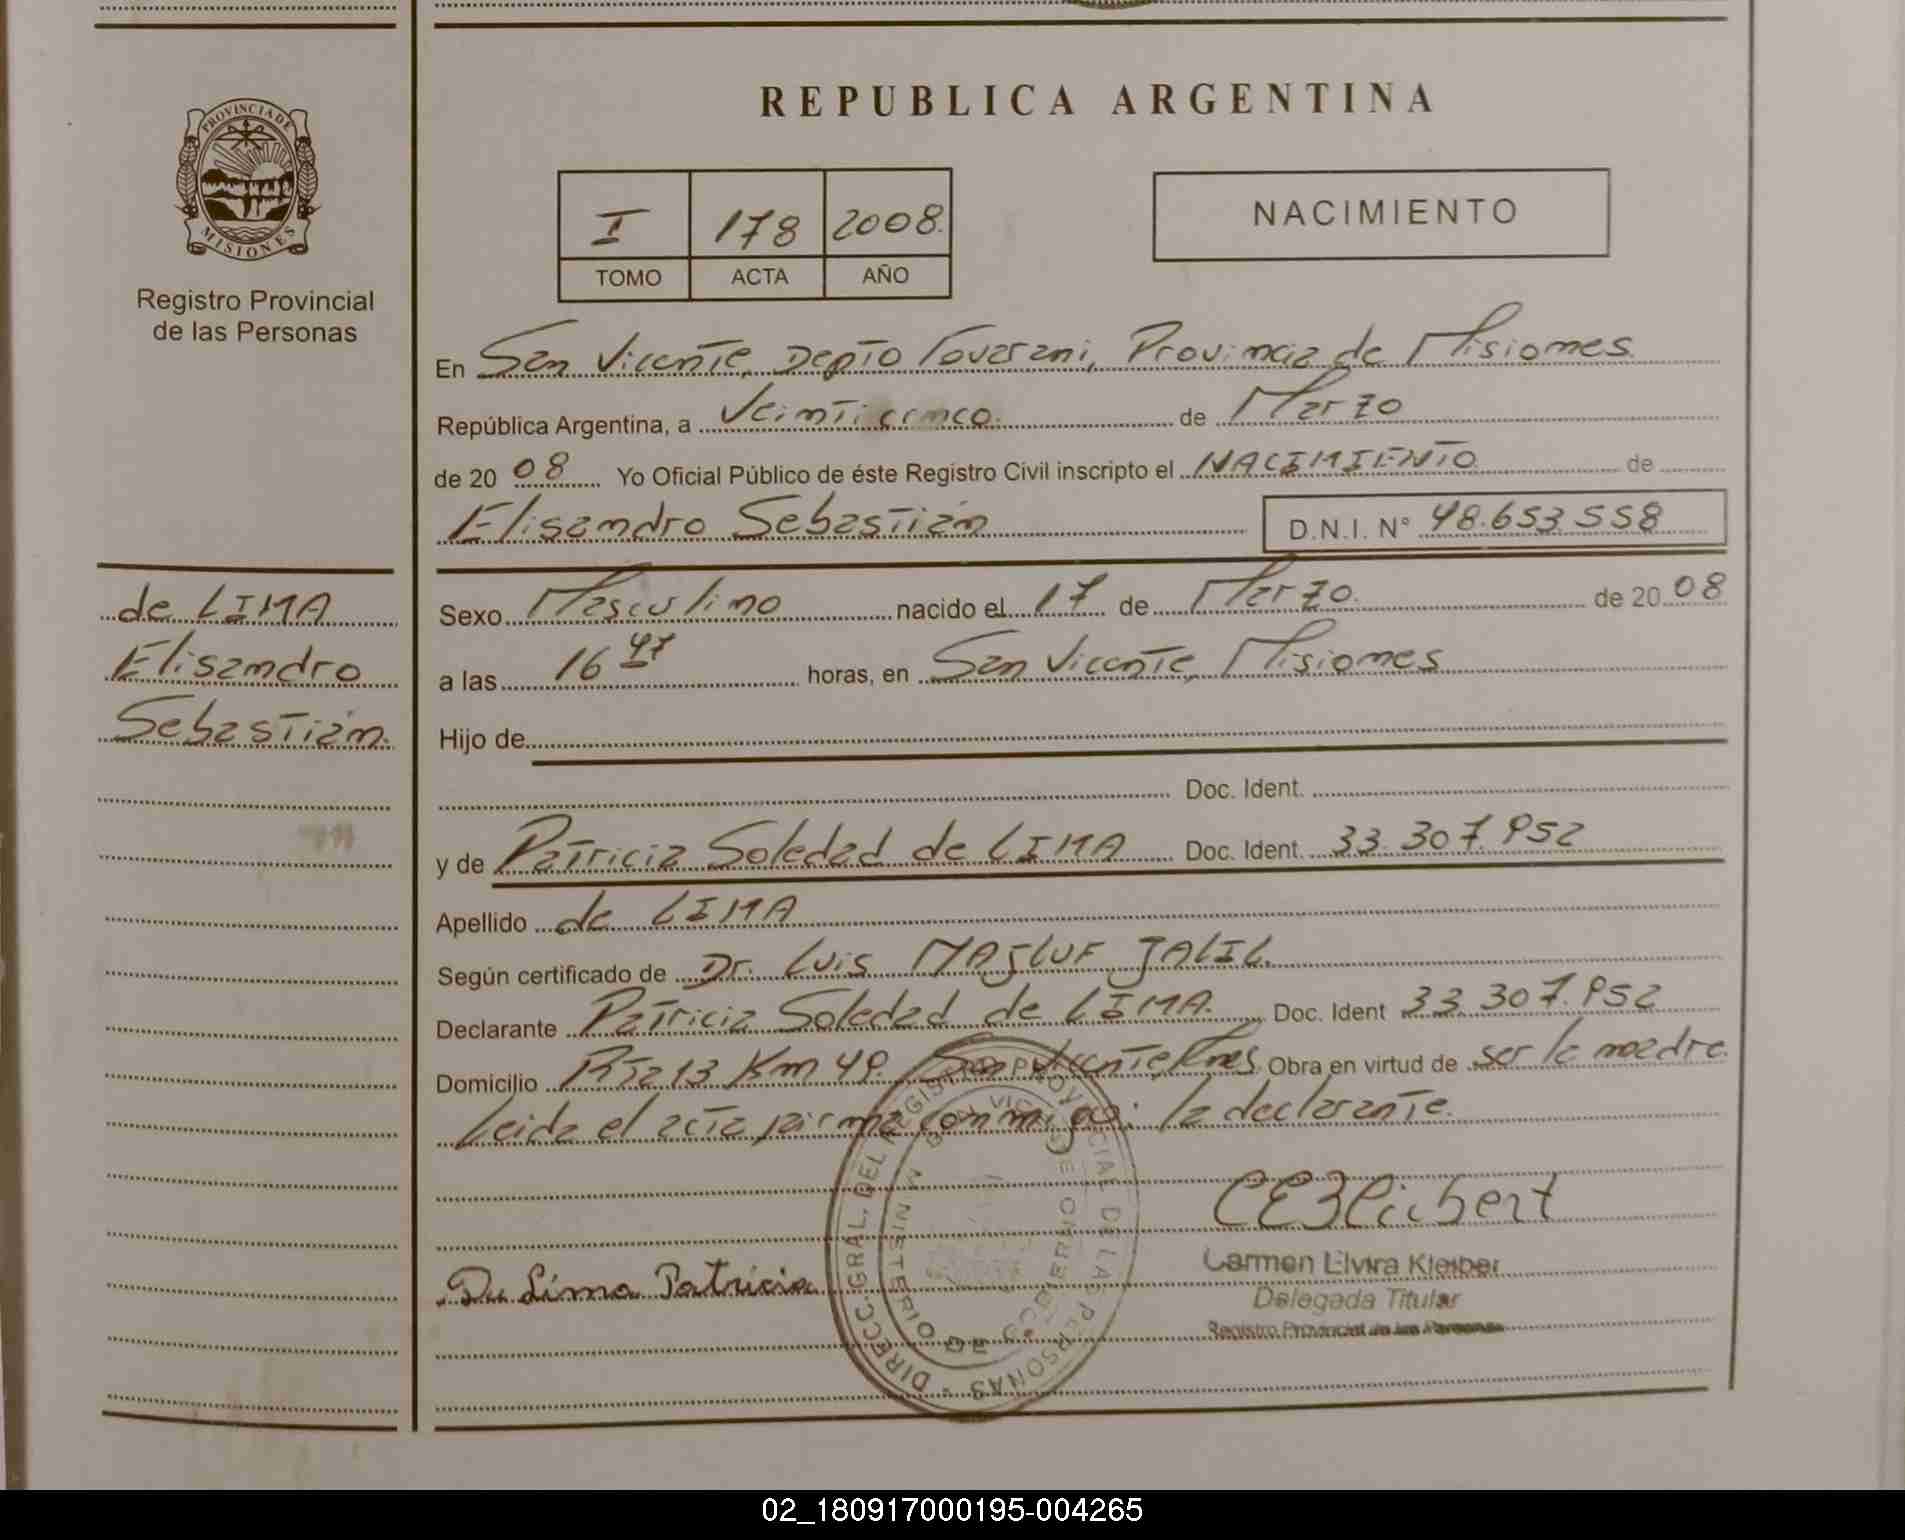 PROVINCIA DE
MISIONES
Registro Provincial
de las Personas
de LIMA
Elisandro
Sebastián
REPUBLICA ARGENTINA
I 178 2008
TOMO ACTA AÑO
NACIMIENTO
En San Vicente, Depto Guarani, Provincia de Misiones
República Argentina, a Veinticinco de Marzo
de 2008 Yo Oficial Público de éste Registro Civil inscripto el NACIMIENTO de
Elisandro Sebastián D.N.I. N° 48.653.558
Sexo Masculino nacido el 17 de Marzo de 2008
a las 16 47 horas, en San Vicente, Misiones
Hijo de
Doc. Ident.
y de Patricia Soledad de LIMA Doc. Ident. 33.307.952
Apellido de LIMA
Según certificado de Dr. Luis MAJLUF JALIL.
Declarante Patricia Soledad de LIMA. Doc. Ident 33.307.952
Domicilio Rta 13 Km 49. San Vicente, Mnes Obra en virtud de ser la madre
Leida el acta firma conmigo: la declarante.
De Lima Patricia
DIRECC. GRAL. DEL REGISTRO PROVINCIAL DE LAS PERSONAS
MINISTERIO DE GOBIERNO
SAN VICENTE
Carmen Elvira Kleiber
Delegada Titular
Registro Provincial de las Personas
02_180917000195-004265